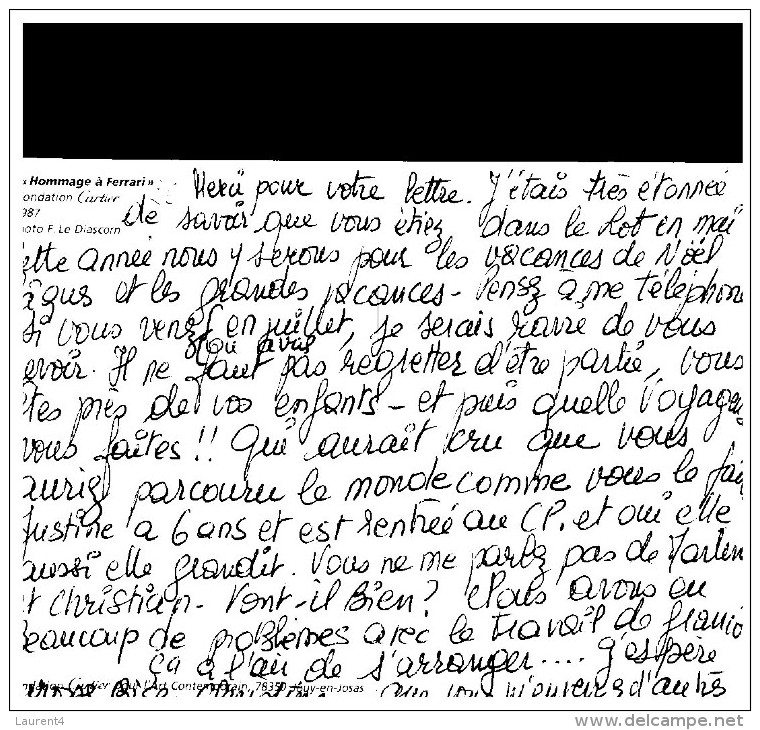 « Hommage à Ferrari »
ondation Cartier
987
oto F. Le Diascorn
Merci pour votre lettre. J'étais très étonnée
de savoir que vous étiez dans le Lot en mai
ette année nous y serons pour les vacances de Noël
âques et les grandes vacances - Pensez à me téléphon
si vous venez en juillet, je serais ravie de vous
ou avril
evoir. Il ne faut pas regretter d'être partie, vous
tes près de vos enfants - et puis quelle voyages
vous faites !! Qui aurait cru que vous
auriez parcouru le monde comme vous le fai
Justine a 6 ans et est rentrée au CP. et oui elle
aussi elle grandit. Vous ne me parlez pas de
t Christian - Vont-il Bien ? Nous avons eu
Beaucoup de problèmes avec le travail de
ça à l'air de s'arranger .... j'espère
ndation Cartier pour l'Art Contemporain, 78350 Jouy-en-Josas
d'autres
Laurent4
delcampe.net